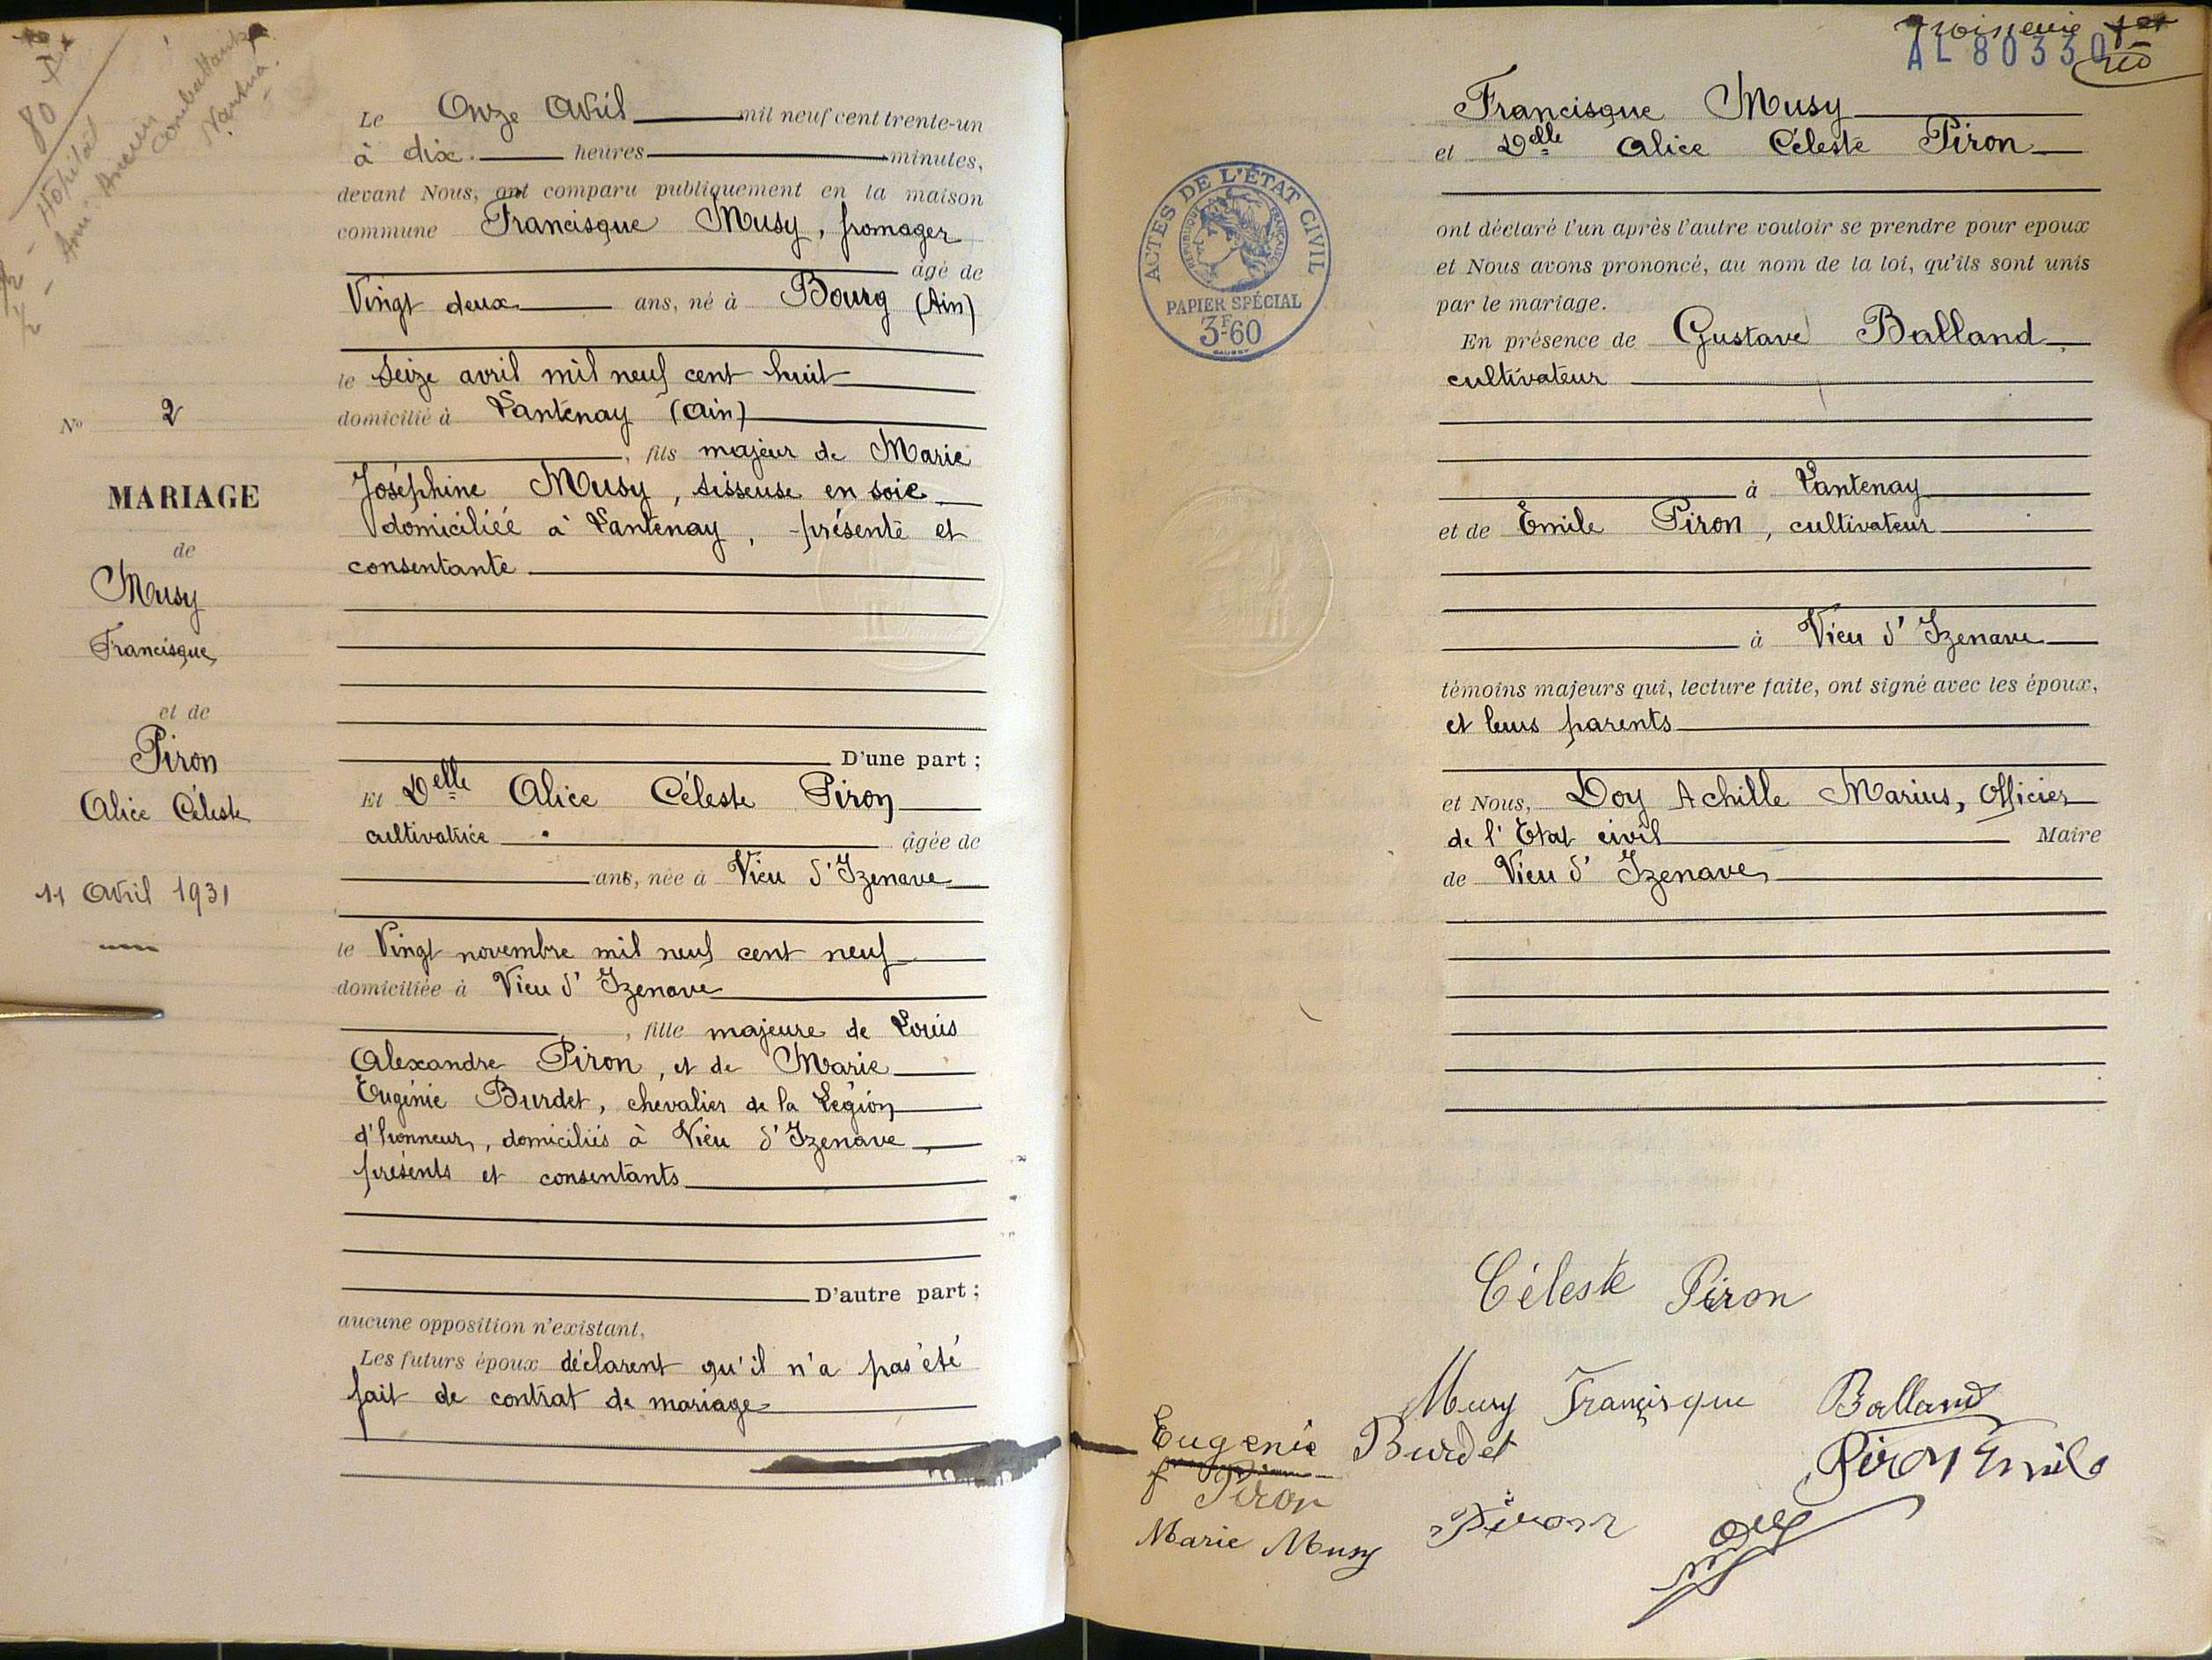 80
Hôpital
Anciens
Combattants
Nantua
Le Onze Avril mil neuf cent trente-un
à dix heures minutes,
devant Nous, ont comparu publiquement en la maison
commune Francisque Musy, fromager
âgé de
Vingt deux ans, né à Bourg (Ain)
le Seize avril mil neuf cent huit
domicilié à Lantenay (Ain)
, fils majeur de Marie
Joséphine Musy, tisseuse en soie
domiciliée à Lantenay, présente et
consentante
D'une part ;
Et Delle Alice Céleste Piron
cultivatrice âgée de
ans, née à Vieu d'Izenave
le Vingt novembre mil neuf cent neuf
domiciliée à Vieu d'Izenave
, fille majeure de Louis
Alexandre Piron, et de Marie
Eugénie Burdet, chevalier de la Légion
d'honneur, domiciliés à Vieu d'Izenave,
présents et consentants
D'autre part ;
aucune opposition n'existant,
Les futurs époux déclarent qu'il n'a pas été
fait de contrat de mariage
No 2
MARIAGE
de
Musy
Francisque
et de
Piron
Alice Céleste
11 Avril 1931
troisième
AL 80330
Francisque Musy
et Delle Alice Céleste Piron
ont déclaré l'un après l'autre vouloir se prendre pour epoux
et Nous avons prononcé, au nom de la loi, qu'ils sont unis
par le mariage.
En présence de Gustave Balland
cultivateur
à Lantenay
et de Émile Piron, cultivateur
à Vieu d'Izenave
témoins majeurs qui, lecture faite, ont signé avec les époux,
et leurs parents
et Nous, Doy Achille Marius, Officier
de l'Etat civil Maire
de Vieu d'Izenave
ACTES DE L'ÉTAT CIVIL
RÉPUBLIQUE FRANÇAISE
PAPIER SPÉCIAL
3F60
Céleste Piron
Musy Françisque Balland
Eugenie Burdet
Piron Emile
f Piron
Piron
Marie Musy
Doy